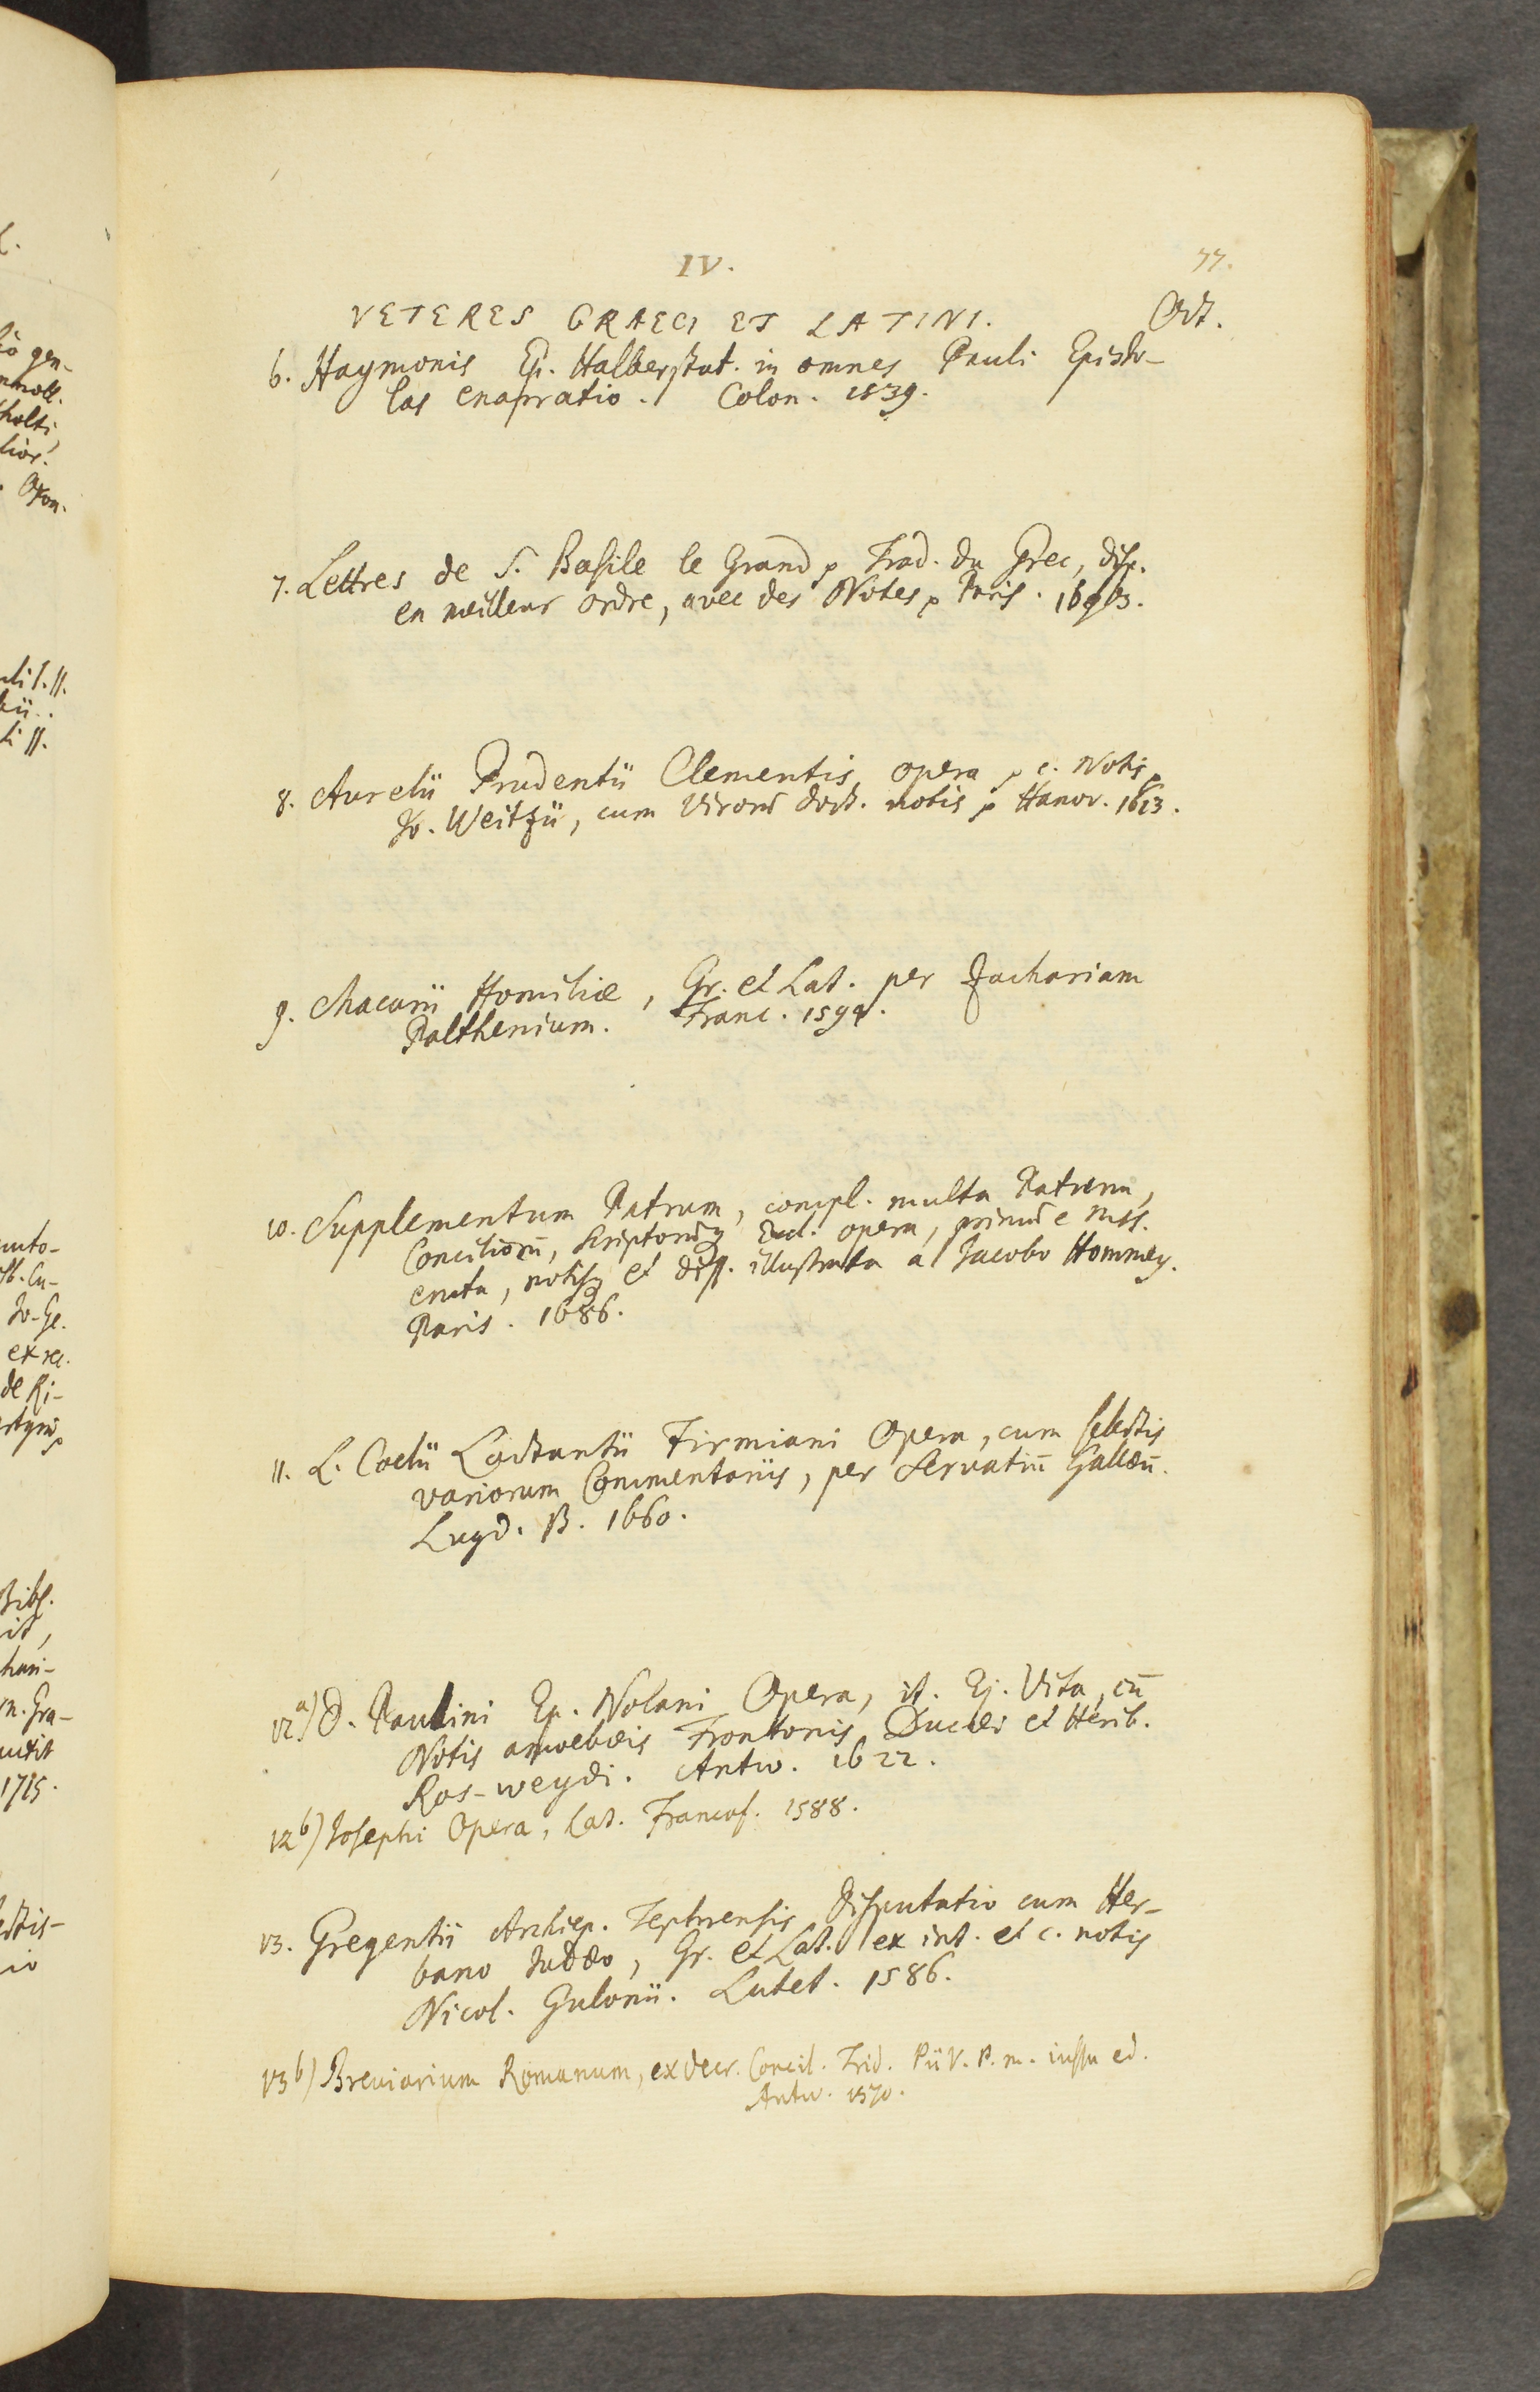 IV.
77.
VETERES GRAECI ET LATINI.
Oct.
6. Haymonis Ep. Halberstat. in omnes Pauli Episto-
las enarratio. Colon. 1539.
7. Lettres de S. Basile le Grand, Trad. du Grec, disp.
en meilleur ordre, avec des Notes, Paris. 1693.
8. Aurelii Prudentii Clementis opera, c. Notis
Jo. Weitzii, cum Virorū doct. notis, Hanov. 1613.
9. Macarii Homiliæ, Gr. et Lat. per Zachariam
Palthenium. Franc. 1594.
10. Supplementum Patrum, compl. multa Patrum,
Conciliorū, Scriptorūq Eccl. opera, primū e mss.
eruta, notisq et diss. illustrata a Jacobo Hommey.
Paris. 1686.
11. L. Coelii Lactantii Firmiani Opera, cum selectis
variorum Commentariis, per Servatiū Gallæū.
Lugd. B. 1660.
12 a) D. Paulini Ep. Nolani Opera, it. Ej. Vita, cū
Notis amoebæis Frontonis Ducæi et Herib.
Ros-weydi. Antw. 1622.
12 b) Josephi Opera, Lat. Francof. 1588.
13. Gregentii Archiep. Tephrensis Disputatio cum Her-
bano Judæo, Gr. et Lat. ex int. et c. notis
Nicol. Gulonii. Lutet. 1586.
13 b) Breviarium Romanum, ex decr. Concil. Trid. Pii V. P. m. iussu ed.
Antw. 1570.